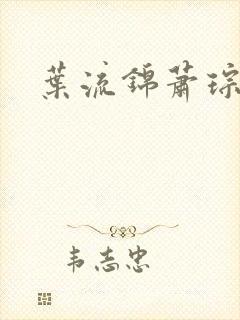 葉流錦蕭琮
韦志忠